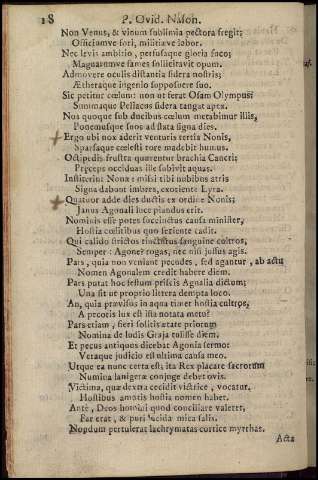 18 P. Ovid. Nason.
Non Venus, & vinum sublimia pectora fregit;
Officiumve fori, militiæve labor.
Nec levis ambitio, perfusaque gloria fuco;
Magnarumve fames sollicitavit opum.
Admovere oculis distantia sidera nostris;
Ætheraque ingenio supposuere suo.
Sic petitur cœlum: non ut ferat Ossam Olympus;
Summaque Peliacus sidera tangat apex.
Nos quoque sub ducibus cœlum metabimur illis,
Ponemusque suos ad stata signa dies.
Ergo ubi nox aderit venturis tertia Nonis,
Sparsaque cœlesti rore madebit humus.
Octipedis frustra quærentur brachia Cancri;
Præceps occiduas ille subivit aquas.
Institerint Nonæ: missi tibi nubibus atris
Signa dabunt imbres, exoriente Lyra.
Quatuor adde dies ductis ex ordine Nonis;
Janus Agonali luce piandus erit.
Nominis esse potes succinctus causa minister,
Hostia cœlitibus quo feriente cadit.
Qui calido strictos tincturus sanguine cultros,
Semper: Agone? rogat, nec nisi jussus agit.
Pars, quia non veniant pecudes, sed agantur, ab actu
Nomen Agonalem credit habere diem.
Pars putat hoc festum priscis Agnalia dictum;
Una sit ut proprio littera dempta loco.
An, quia prævisos in aqua timet hostia cultros,
A pecoris lux est ista notata metu?
Pars etiam, fieri solitis ætate priorum
Nomina de ludis Graja tulisse diem.
Et pecus antiquus dicebat Agonia sermo:
Veraque judicio est ultima causa meo.
Utque ea nunc certa est; ita Rex placare sacrorum
Numina lanigeræ conjuge debet ovis.
Victima, quæ dextra cecidit victrice, vocatur.
Hostibus amotis hostia nomen habet.
Ante, Deos homini quod conciliare valeret,
Far erat, & puri lucida mica salis.
Nondum pertulerat lachrymatas cortice myrrhas.
Acta